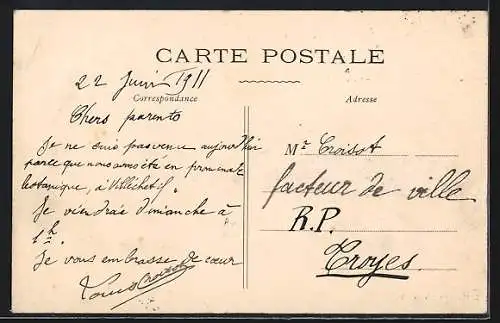 CARTE POSTALE
22 Juin 1911
Correspondance
Adresse
Chers parents
Je ne suis pas venue aujourd'hui
parce que nous avons été en promenade
botanique, à Villechétif.
Je viendrai dimanche à
1h.
Je vous embrasse de cœur
Louis Croisot
Mr Croisot
facteur de ville
R.P.
Troyes.